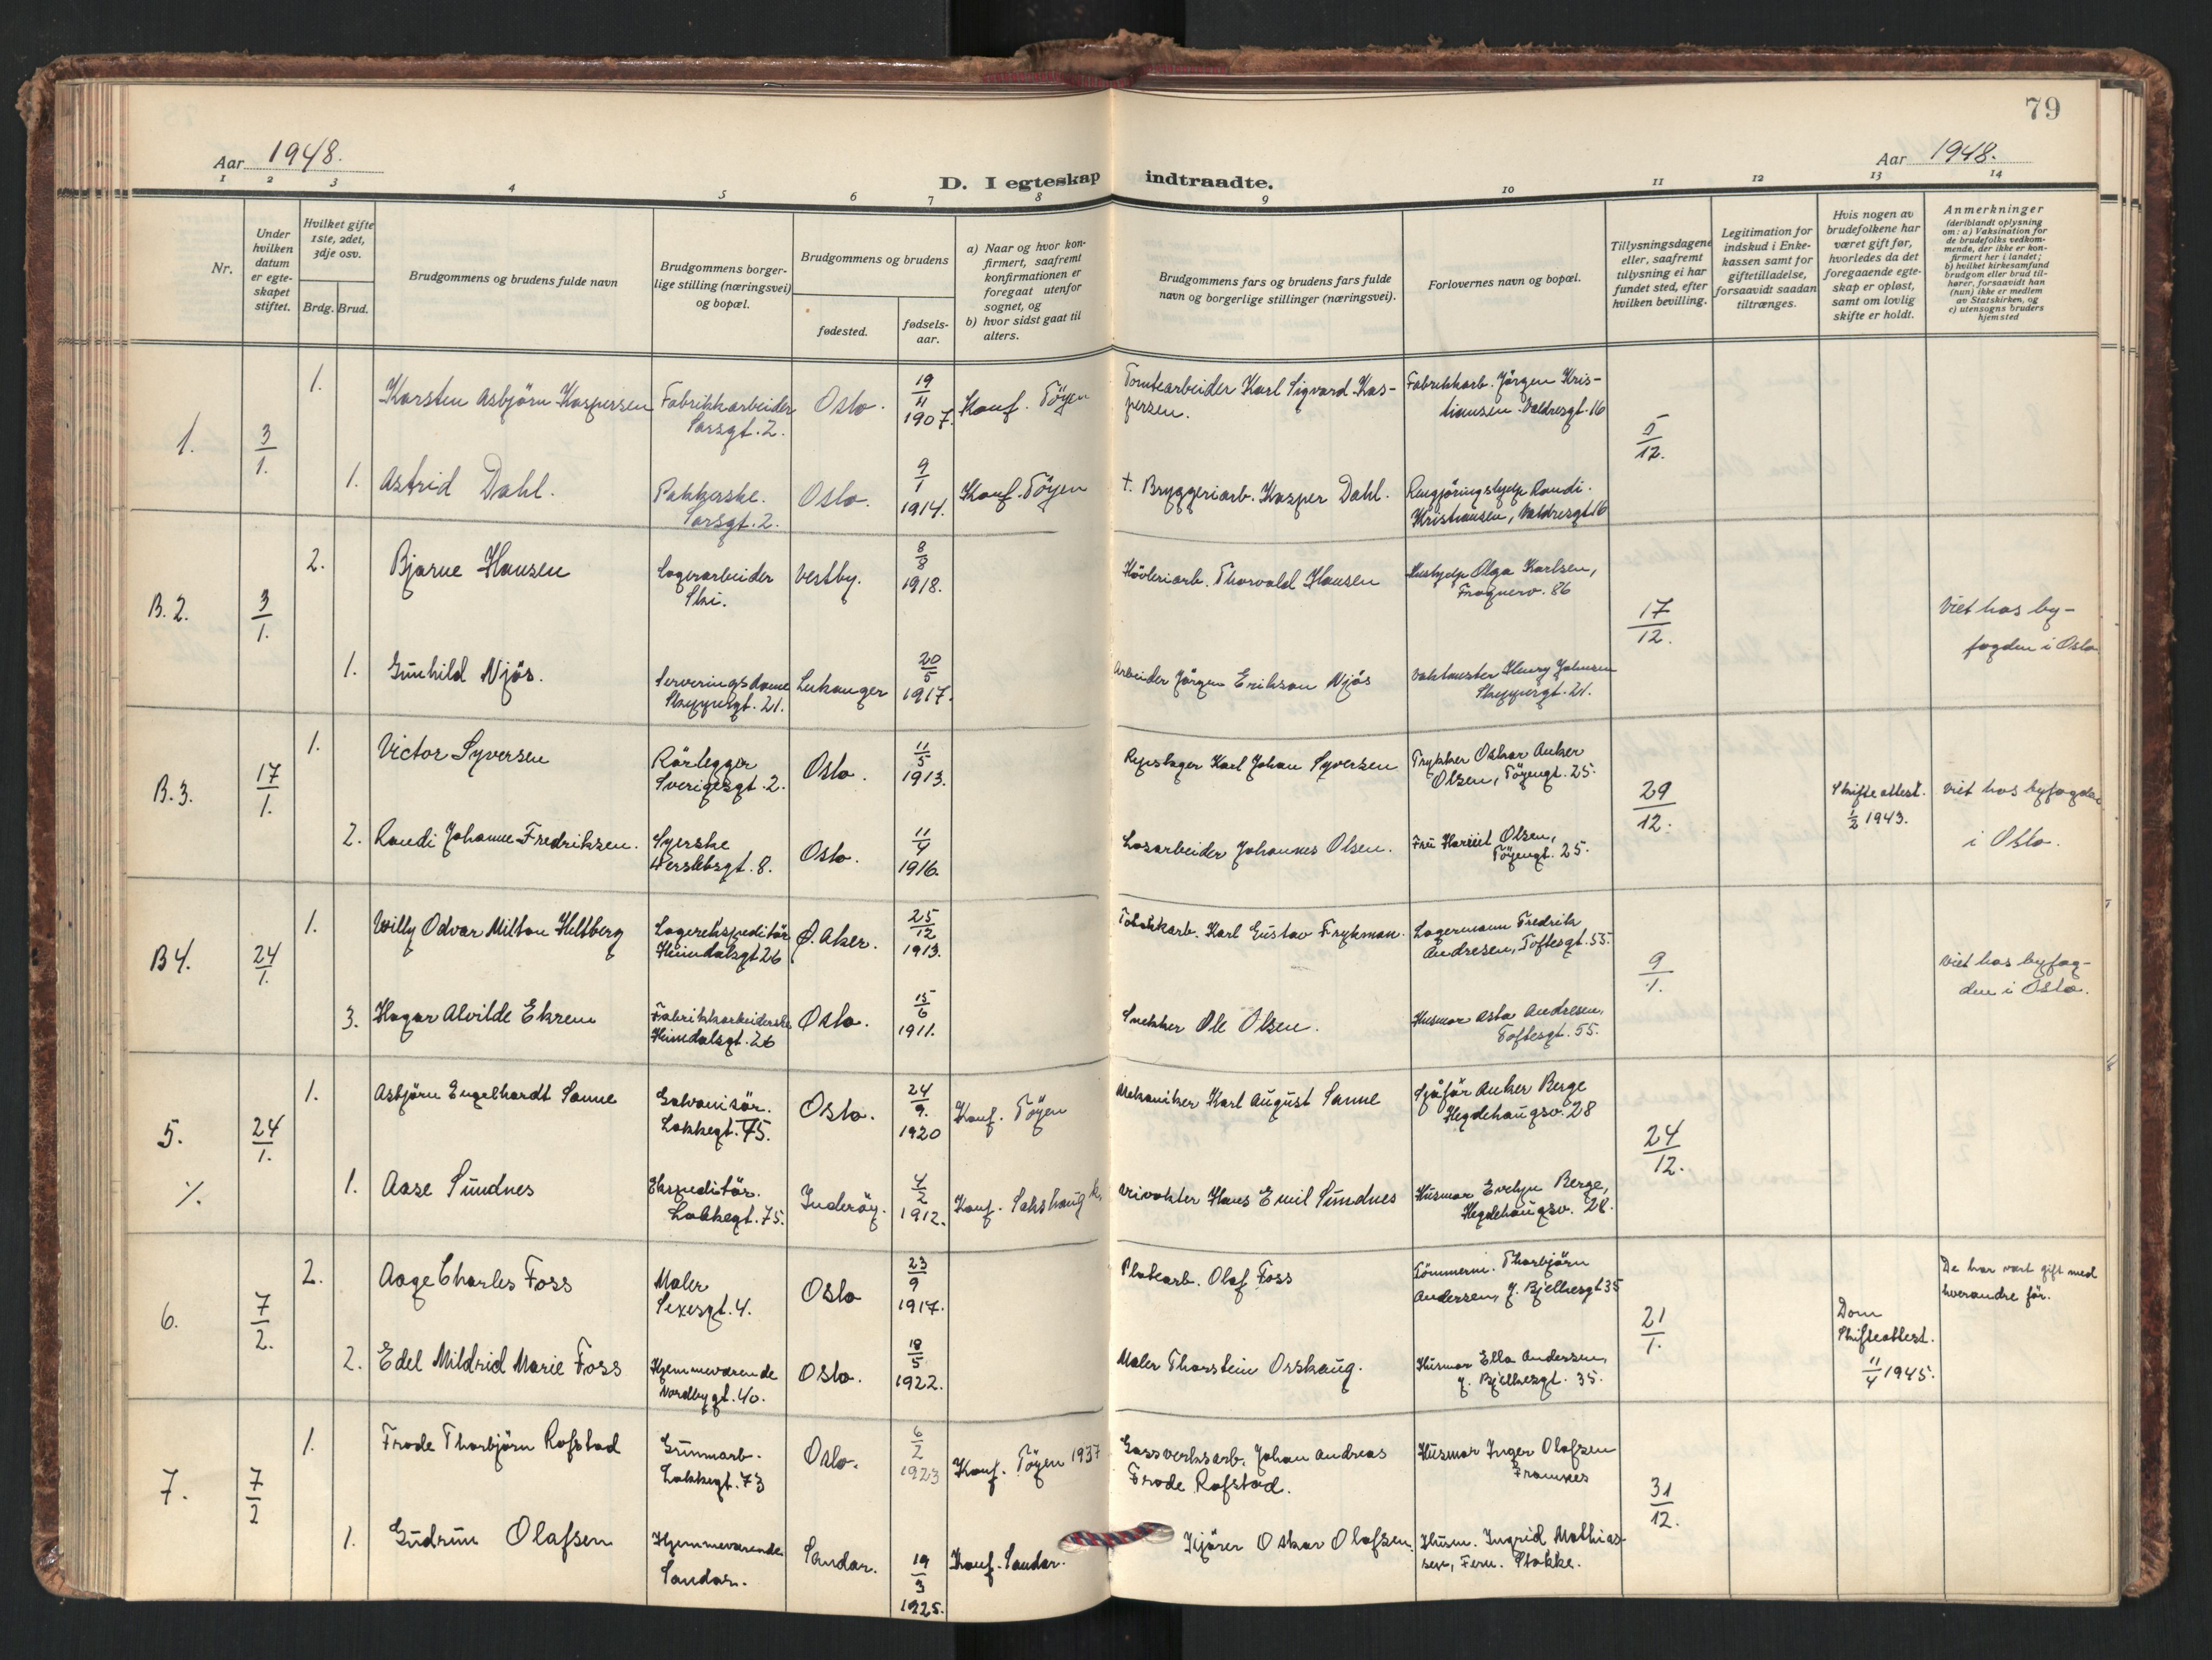 79
Aar 1948.
Aar 1948.
D. I egteskap indtraadte.
1 2 3 4 5 6 7 8 9 10 11 12 13 14
Nr.
Under
hvilken
datum
er egte-
skapet
stiftet.
Hvilket gifte
1ste, 2det,
3dje osv.
Brdg. Brud.
Brudgommens og brudens fulde navn
Brudgommens borger-
lige stilling (næringsvei)
og bopæl.
Brudgommens og brudens
fødested.
fødsels-
aar.
a) Naar og hvor kon-
firmert, saafremt
konfirmationen er
foregaat utenfor
sognet, og
b) hvor sidst gaat til
alters.
Brudgommens fars og brudens fars fulde
navn og borgerlige stillinger (næringsvei).
Forlovernes navn og bopæl.
Tillysningsdagene
eller, saafremt
tillysning ei har
fundet sted, efter
hvilken bevilling.
Legitimation for
indskud i Enke-
kassen samt for
giftetilladelse,
forsaavidt saadan
tiltrænges.
Hvis nogen av
brudefolkene har
været gift før,
hvorledes da det
foregaaende egte-
skap er opløst,
samt om lovlig
skifte er holdt.
Anmerkninger
(deriblandt oplysning
om: a) Vaksination for
de brudefolks vedkom-
mende, der ikke er kon-
firmert her i landet;
b) hvilket kirkesamfund
brudgom eller brud til-
hører, forsaavidt han
(hun) ikke er medlem
av Statskirken, og
c) utensogns bruders
hjemsted
1. 3/1.
1. Karsten Asbjörn Kaspersen
Fabrikkarbeider
Sarsgt. 2.
Oslo.
19/11
1907.
Konf. Töyen
Tomtearbeider Karl Sigvard Kas-
persen.
Fabrikkarb. Jörgen Kris-
tiansen. Valdresgt. 16
5/12.
1. Astrid Dahl.
Pakkerske.
Sarsgt. 2.
Oslo.
9/1
1914.
Konf. Töyen
†. Bryggeriarb. Kasper Dahl.
Rengjöringshjelp Randi
Kristiansen, Valdresgt 16
B. 2. 3/1.
2. Bjarne Hansen
Lagerarbeider
Ski.
Vestby.
8/8
1918.
Hövleriarb. Thorvald Hansen
Hushjelp Olga Karlsen,
Frognerv. 86
17/12.
Viet hos by-
fogden i Oslo
1. Gunhild Njös.
Serveringsdame
Skippergt. 21.
Leikanger
20/5
1917.
Arbeider Jörgen Erikson Njös
Vaktmester Henry Johnsen
Skippergt. 21.
B. 3. 17/1.
1. Victor Syversen
Rörlegger
Sverigesgt. 2.
Oslo.
11/5
1913.
Repslager Karl Johan Syversen
Trykker Oskar Anker
Olsen, Töyengt. 25.
29/12.
Skifteattest.
1/2 1943.
Viet hos byfogden
i Oslo.
2. Randi Johanne Fredriksen.
Syerske
Herslebsgt. 8.
Oslo.
11/4
1916.
Losarbeider Johannes Olsen.
Fru Harriet Olsen,
Töyengt. 25.
B 4. 24/1.
1. Willy Odvar Milton Heltberg
Lagerekspeditör
Heimdalsgt 26
Ö. Aker.
25/12
1913.
Tobakkarb. Karl Gustav Frykman.
Lagermann Fredrik
Andresen, Toftesgt. 55.
9/1.
Viet hos byfog-
den i Oslo.
3. Hagar Alvilde Ekrem
Fabrikkarbeiderske
Heimdalsgt. 26
Oslo.
15/6
1911.
Snekker Ole Olsen.
Husmor Asta Andresen,
Toftesgt. 55.
5. 24/1.
1. Asbjörn Engelhardt Sanne
Galvanisör.
Lakkegt. 75.
Oslo.
24/9.
1920
Konf. Töyen
Mekaniker Karl August Sanne
Sjåför Anker Berge
Hegdehaugsv. 28
24/12.
./.
1. Aase Sundnes
Ekspeditör.
Lakkegt. 75.
Inderöy.
4/2
1912.
Konf. Sakshaug k.
Vrivokter Hans Emil Sundnes
Husmor Evelyn Berge,
Hegdehaugsv. 28.
6. 7/2.
2. Aage Charles Foss
Maler
Sexesgt. 4.
Oslo
23/9
1917.
Platearb. Olaf Foss
Tömmerm. Thorbjörn
Andersen, g. Bjelkesgt 35
21/1.
Dom
Skifteattest.
11/4 1945.
De har vært gift med
hverandre för.
2. Edel Mildrid Marie Foss
Hjemmeværende
Nordbygt. 40.
Oslo.
18/5
1922.
Maler Thorstein Orskaug.
Husmor Ella Andersen,
g. Bjelkesgt. 35.
7. 7/2
1. Frode Thorbjörn Rofstad
Gummarb.
Lakkegt. 73
Oslo.
6/2
1923
Konf. Töyen 1937
Gassverksarb. Johan Andreas
Frode Rofstad.
Husmor Inger Olafsen
Framnes
31/12.
1. Gudrun Olafsen
Hjemmeværende
Sandar.
Sandar.
19/3
1925.
Konf. Sandar.
Kjörer Oskar Olafsen.
Husm. Ingrid Mathias-
sen, Fevn. Stokke.